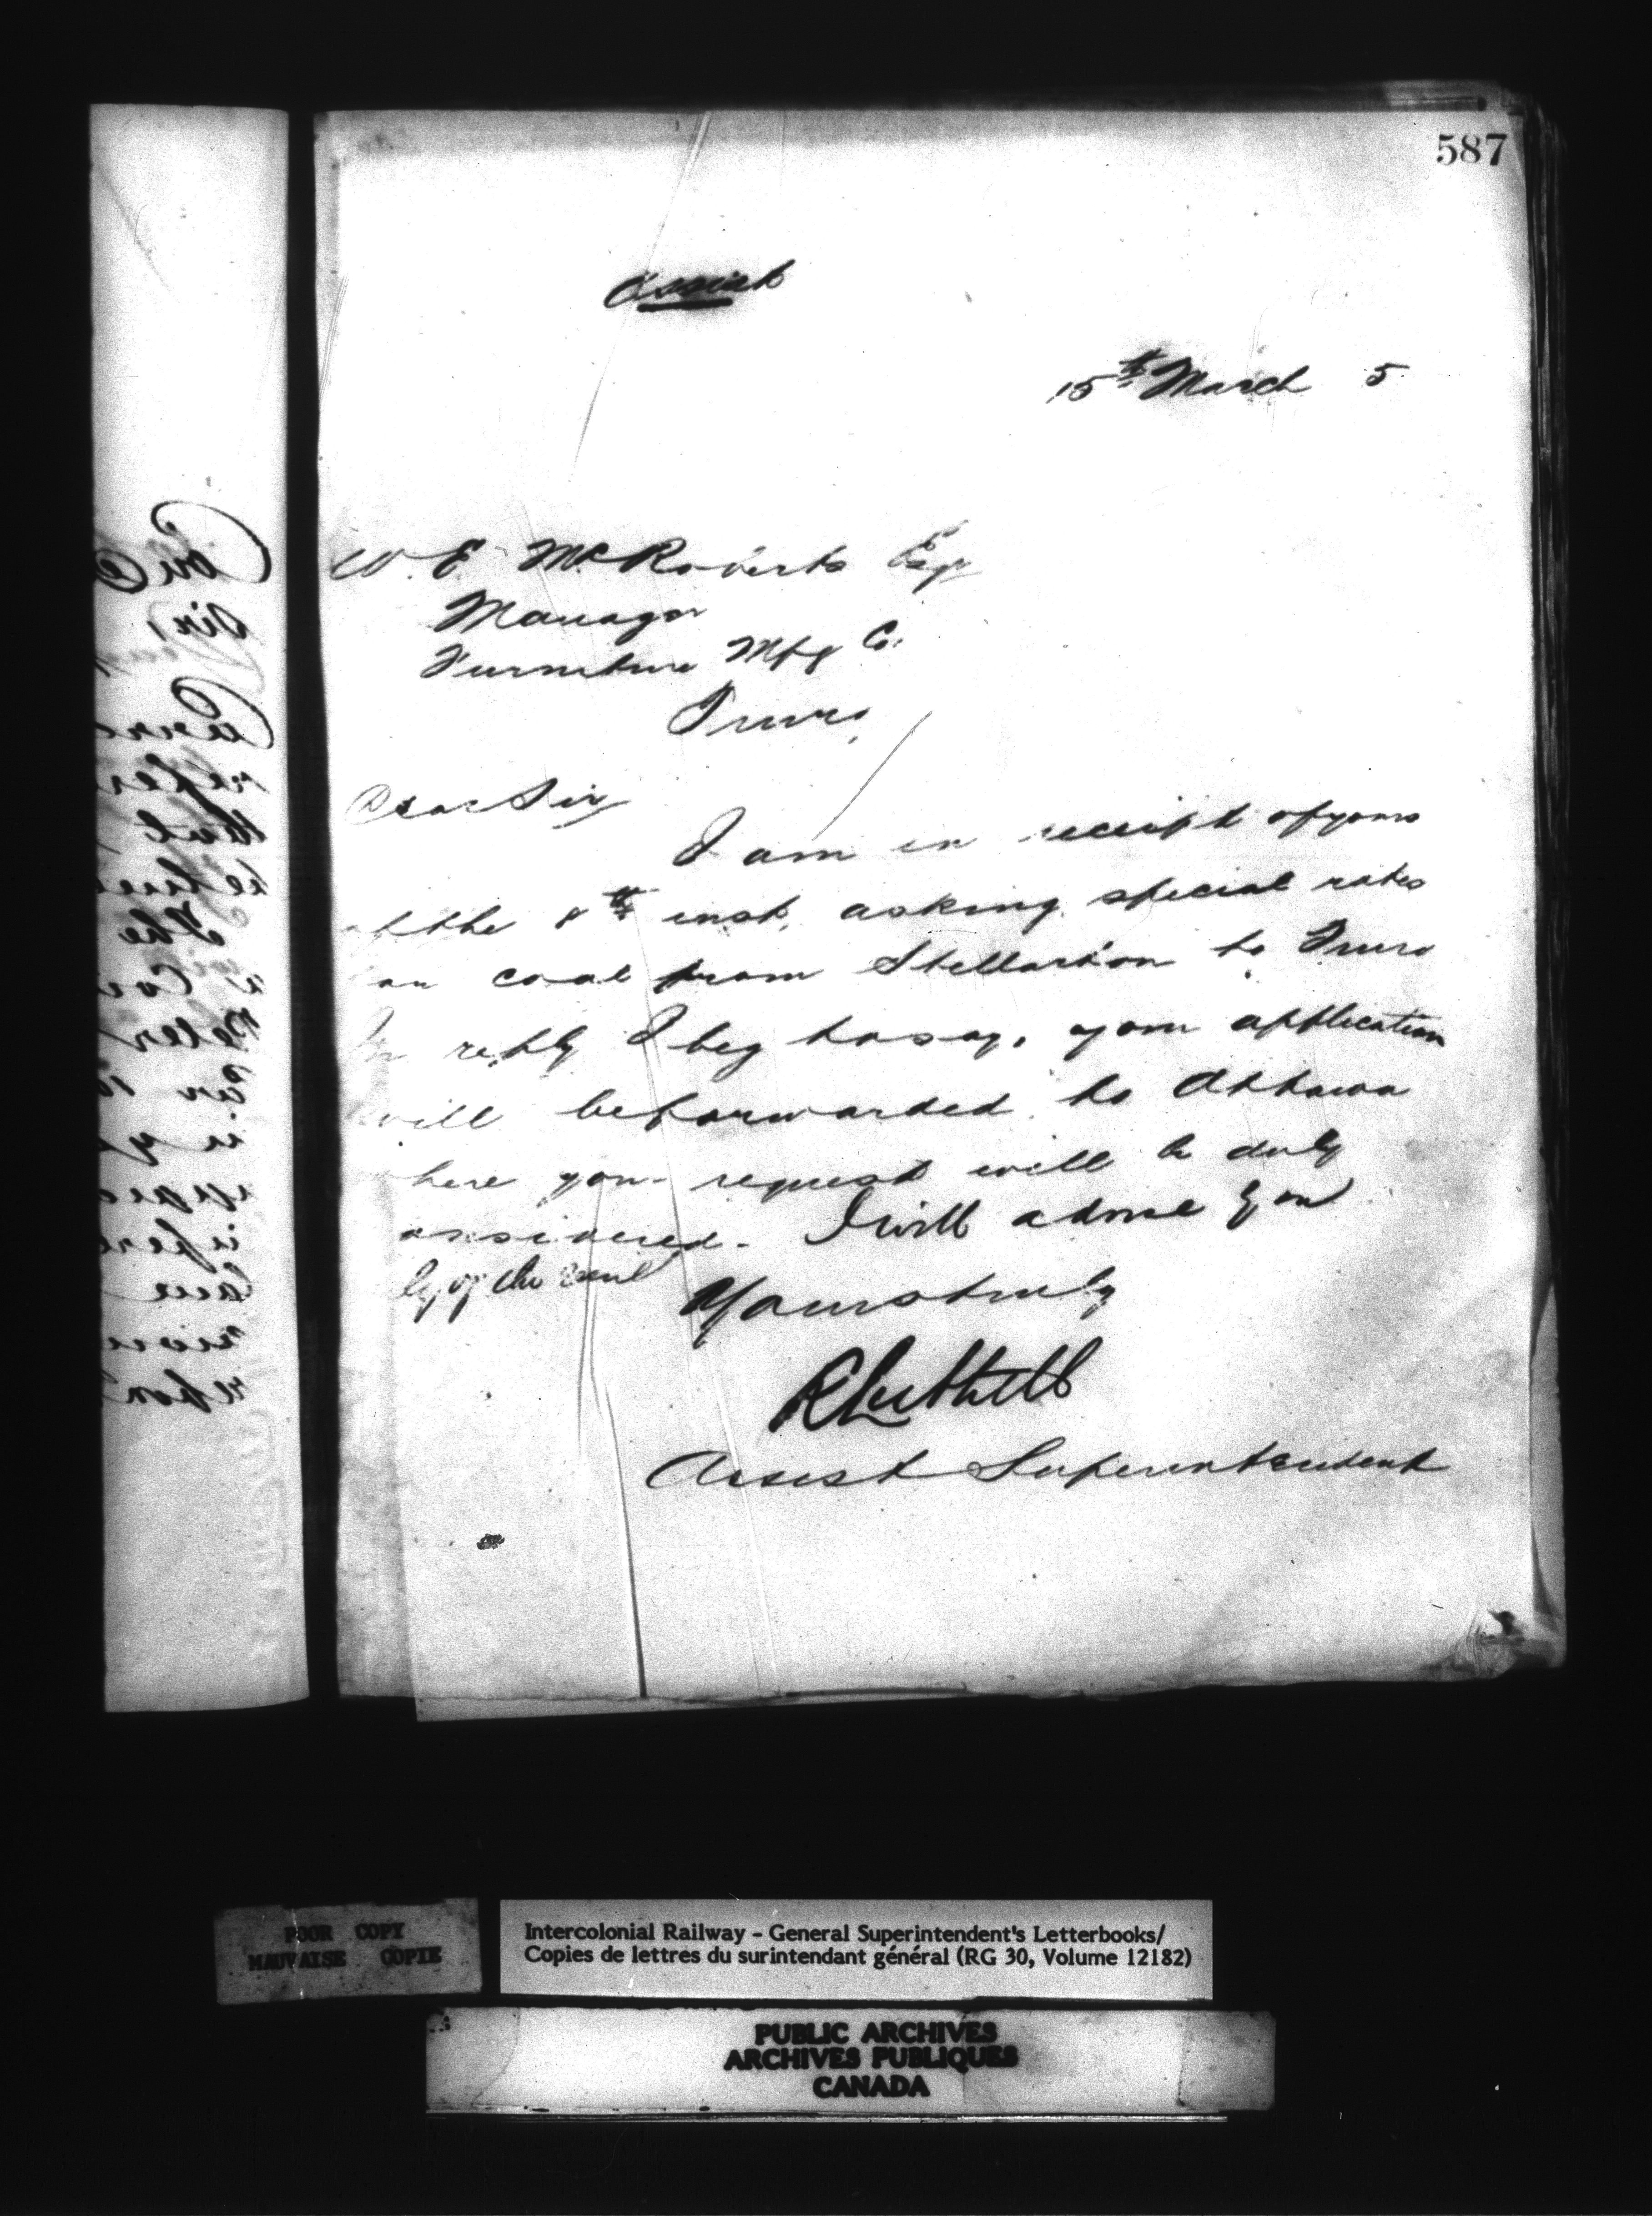 587
Assist
15th March 5
W. E. McRoberts Esq
Manager
Furniture Mfg Co.
Truro,
Dear Sir
I am in receipt of yours
of the 8th inst, asking special rates
on coal from Stellarton to Truro
In reply I beg to say, your application
will be forwarded to Ottawa
here your request will be duly
onsidered. I will advise you
ly of the
Yours truly
R Luttrell
Assist Superintendent
POOR COPY
MAUVAISE COPIE
Intercolonial Railway - General Superintendent's Letterbooks/
Copies de lettres du surintendant général (RG 30, Volume 12182)
PUBLIC ARCHIVES
ARCHIVES PUBLIQUES
CANADA